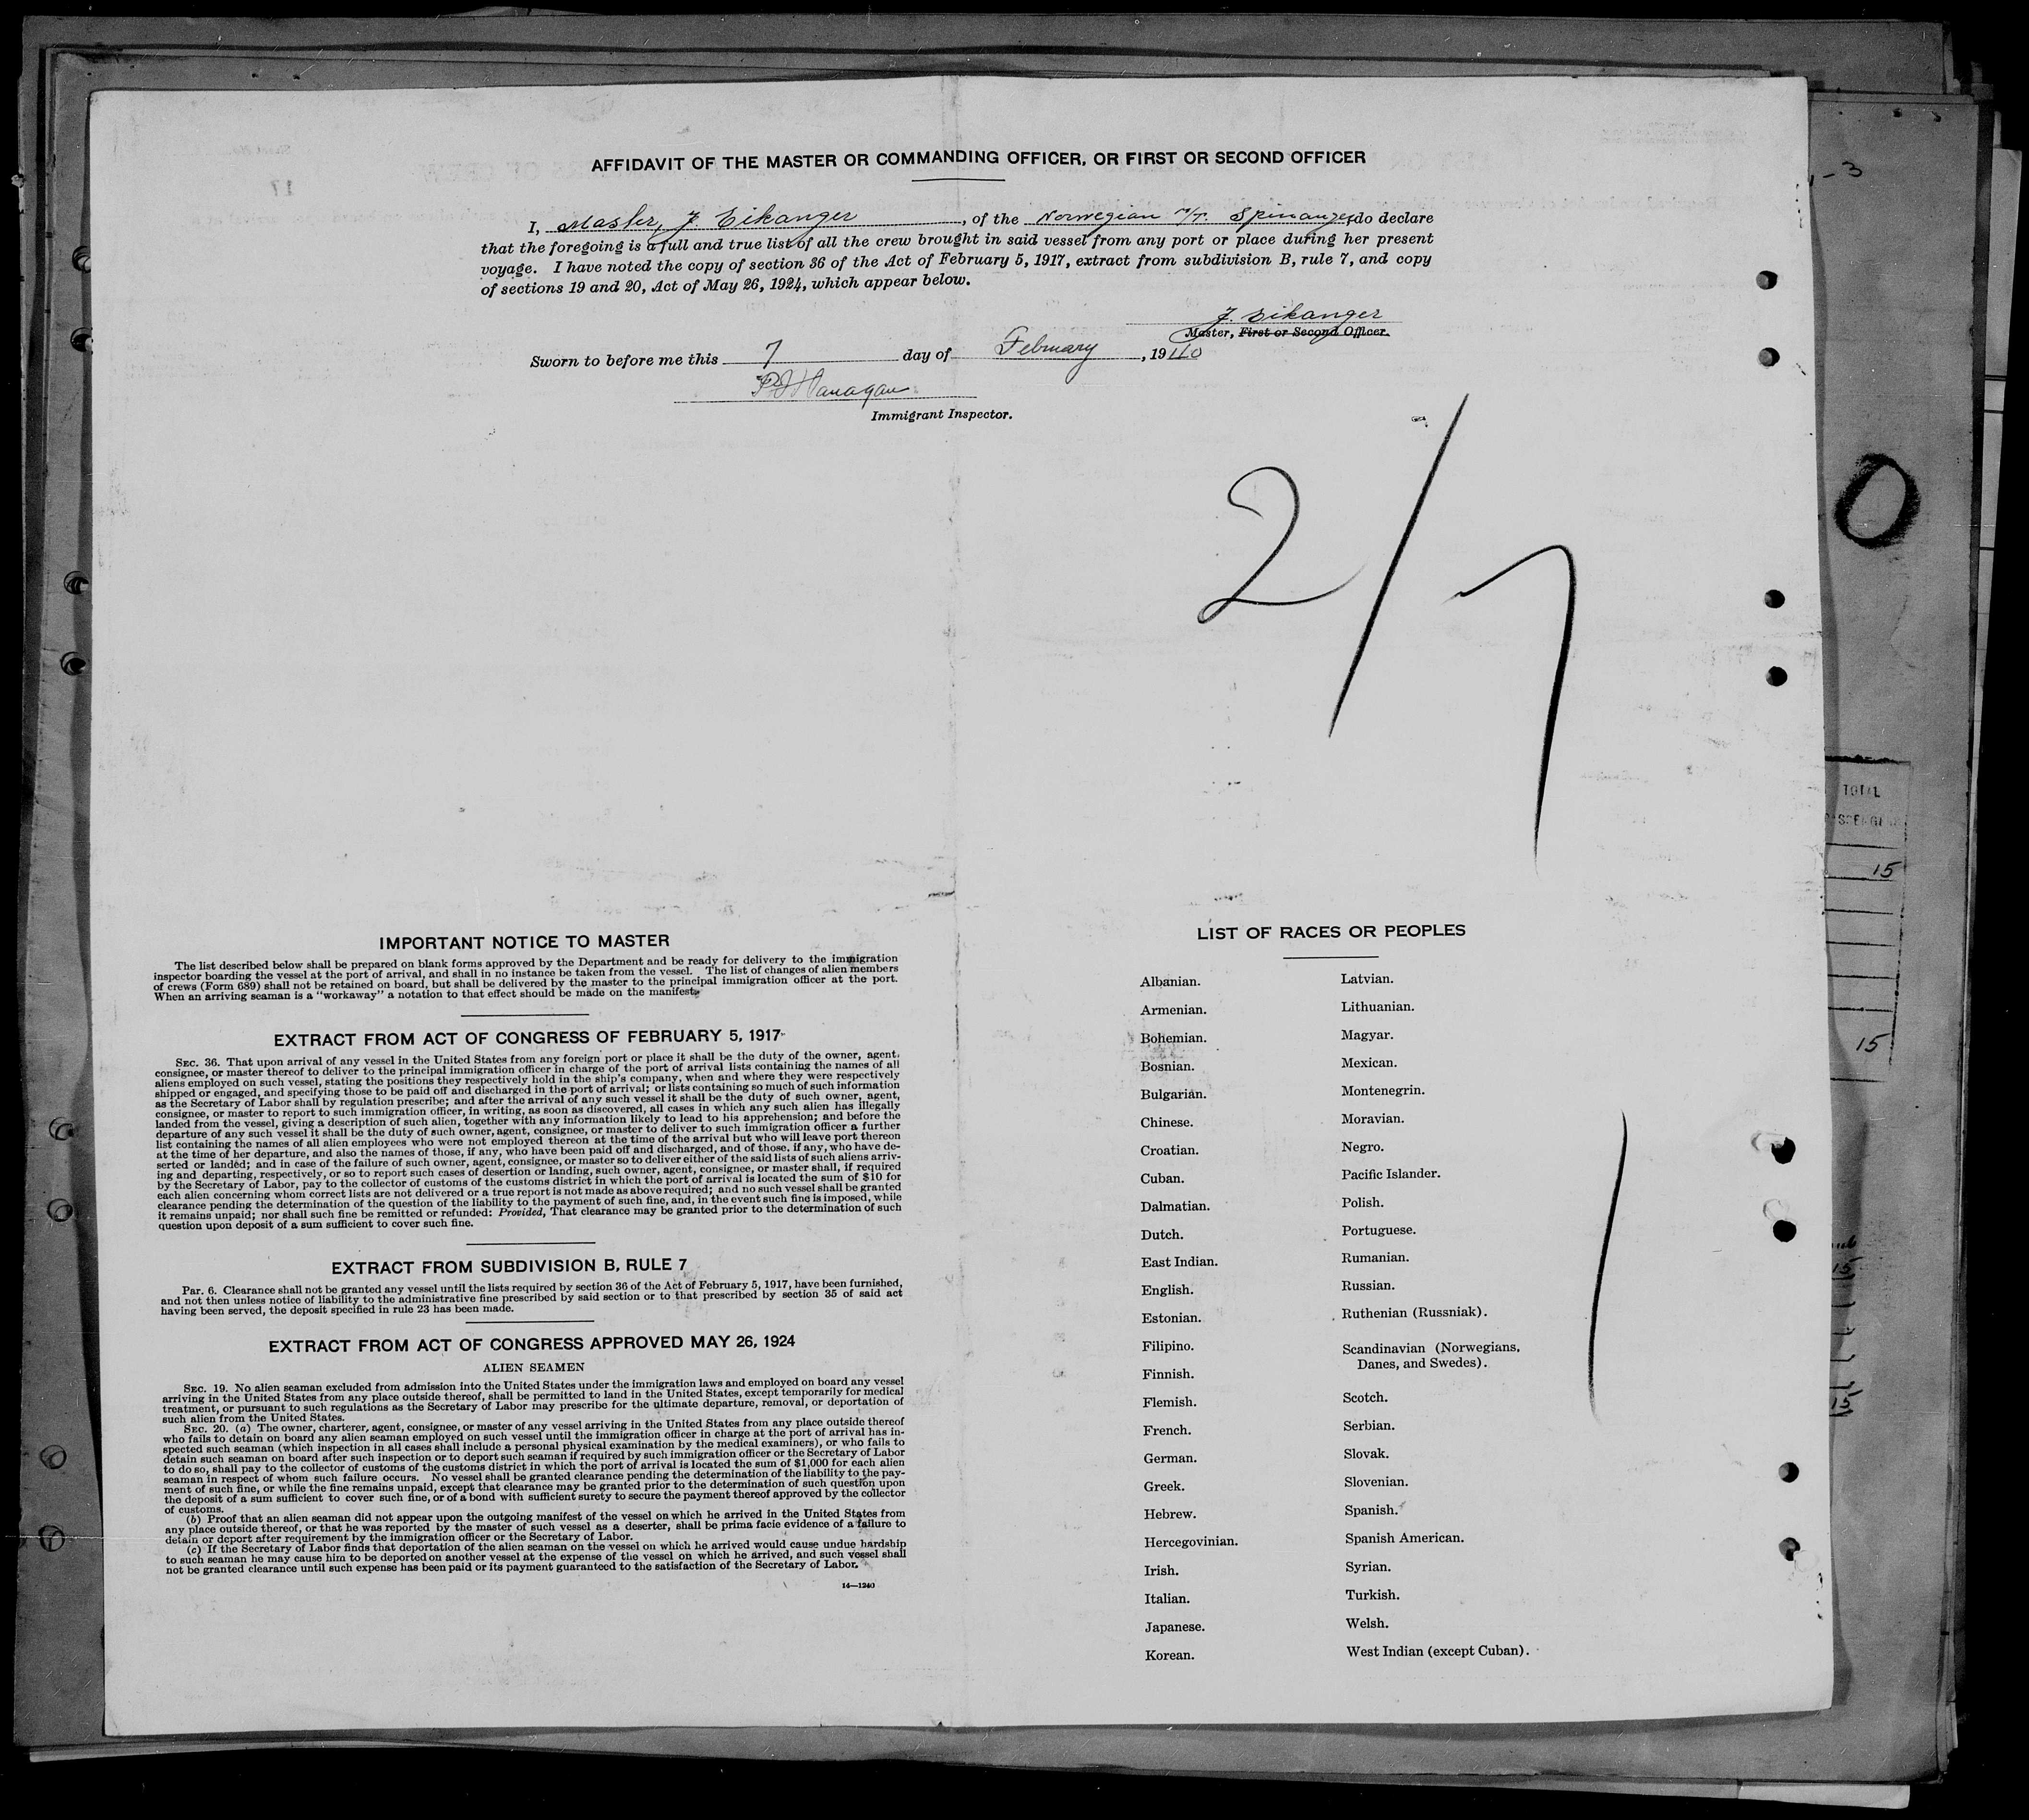 AFFIDAVIT OF THE MASTER OR COMMANDING OFFICER, OR FIRST OR SECOND OFFICER
I, Master, J. Eikanger, of the Norwegian M/T. Spinanger, do declare
that the foregoing is a full and true list of all the crew brought in said vessel from any port or place during her present
voyage. I have noted the copy of section 36 of the Act of February 5, 1917, extract from subdivision B, rule 7, and copy
of sections 19 and 20, Act of May 26, 1924, which appear below.
J. Eikanger
Master, First or Second Officer.
Sworn to before me this 7 day of February, 1940
Immigrant Inspector.
2/7
0
TOTAL
15
15
IMPORTANT NOTICE TO MASTER
The list described below shall be prepared on blank forms approved by the Department and be ready for delivery to the immigration
inspector boarding the vessel at the port of arrival, and shall in no instance be taken from the vessel. The list of changes of alien members
of crews (Form 689) shall not be retained on board, but shall be delivered by the master to the principal immigration officer at the port.
When an arriving seaman is a "workaway" a notation to that effect should be made on the manifest.
EXTRACT FROM ACT OF CONGRESS OF FEBRUARY 5, 1917
SEC. 36. That upon arrival of any vessel in the United States from any foreign port or place it shall be the duty of the owner, agent,
consignee, or master thereof to deliver to the principal immigration officer in charge of the port of arrival lists containing the names of all
aliens employed on such vessel, stating the positions they respectively hold in the ship's company, when and where they were respectively
shipped or engaged, and specifying those to be paid off and discharged in the port of arrival; or lists containing so much of such information
as the Secretary of Labor shall by regulation prescribe; and after the arrival of any such vessel it shall be the duty of such owner, agent,
consignee, or master to report to such immigration officer, in writing, as soon as discovered, all cases in which any such alien has illegally
landed from the vessel, giving a description of such alien, together with any information likely to lead to his apprehension; and before the
departure of any such vessel it shall be the duty of such owner, agent, consignee, or master to deliver to such immigration officer a further
list containing the names of all alien employees who were not employed thereon at the time of the arrival but who will leave port thereon
at the time of her departure, and also the names of those, if any, who have been paid off and discharged, and of those, if any, who have de-
serted or landed; and in case of the failure of such owner, agent, consignee, or master so to deliver either of the said lists of such aliens arriv-
ing and departing, respectively, or so to report such cases of desertion or landing, such owner, agent, consignee, or master shall, if required
by the Secretary of Labor, pay to the collector of customs of the customs district in which the port of arrival is located the sum of $10 for
each alien concerning whom correct lists are not delivered or a true report is not made as above required; and no such vessel shall be granted
clearance pending the determination of the question of the liability to the payment of such fine, and, in the event such fine is imposed, while
it remains unpaid; nor shall such fine be remitted or refunded: Provided, That clearance may be granted prior to the determination of such
question upon deposit of a sum sufficient to cover such fine.
EXTRACT FROM SUBDIVISION B, RULE 7
PAR. 6. Clearance shall not be granted any vessel until the lists required by section 36 of the Act of February 5, 1917, have been furnished,
and not then unless notice of liability to the administrative fine prescribed by said section or to that prescribed by section 35 of said act
having been served, the deposit specified in rule 23 has been made.
EXTRACT FROM ACT OF CONGRESS APPROVED MAY 26, 1924
ALIEN SEAMEN
SEC. 19. No alien seaman excluded from admission into the United States under the immigration laws and employed on board any vessel
arriving in the United States from any place outside thereof, shall be permitted to land in the United States, except temporarily for medical
treatment, or pursuant to such regulations as the Secretary of Labor may prescribe for the ultimate departure, removal, or deportation of
such alien from the United States.
SEC. 20. (a) The owner, charterer, agent, consignee, or master of any vessel arriving in the United States from any place outside thereof
who fails to detain on board any alien seaman employed on such vessel until the immigration officer in charge at the port of arrival has in-
spected such seaman (which inspection in all cases shall include a personal physical examination by the medical examiners), or who fails to
detain such seaman on board after such inspection or to deport such seaman if required by such immigration officer or the Secretary of Labor
to do so, shall pay to the collector of customs of the customs district in which the port of arrival is located the sum of $1,000 for each alien
seaman in respect of whom such failure occurs. No vessel shall be granted clearance pending the determination of the liability to the pay-
ment of such fine, or while the fine remains unpaid, except that clearance may be granted prior to the determination of such question upon
the deposit of a sum sufficient to cover such fine, or of a bond with sufficient surety to secure the payment thereof approved by the collector
of customs.
(b) Proof that an alien seaman did not appear upon the outgoing manifest of the vessel on which he arrived in the United States from
any place outside thereof, or that he was reported by the master of such vessel as a deserter, shall be prima facie evidence of a failure to
detain or deport after requirement by the immigration officer or the Secretary of Labor.
(c) If the Secretary of Labor finds that deportation of the alien seaman on the vessel on which he arrived would cause undue hardship
to such seaman he may cause him to be deported on another vessel at the expense of the vessel on which he arrived, and such vessel shall
not be granted clearance until such expense has been paid or its payment guaranteed to the satisfaction of the Secretary of Labor.
14—1240
LIST OF RACES OR PEOPLES
Albanian.
Armenian.
Bohemian.
Bosnian.
Bulgarian.
Chinese.
Croatian.
Cuban.
Dalmatian.
Dutch.
East Indian.
English.
Estonian.
Filipino.
Finnish.
Flemish.
French.
German.
Greek.
Hebrew.
Hercegovinian.
Irish.
Italian.
Japanese.
Korean.
Latvian.
Lithuanian.
Magyar.
Mexican.
Montenegrin.
Moravian.
Negro.
Pacific Islander.
Polish.
Portuguese.
Rumanian.
Russian.
Ruthenian (Russniak).
Scandinavian (Norwegians,
Danes, and Swedes).
Scotch.
Serbian.
Slovak.
Slovenian.
Spanish.
Spanish American.
Syrian.
Turkish.
Welsh.
West Indian (except Cuban).